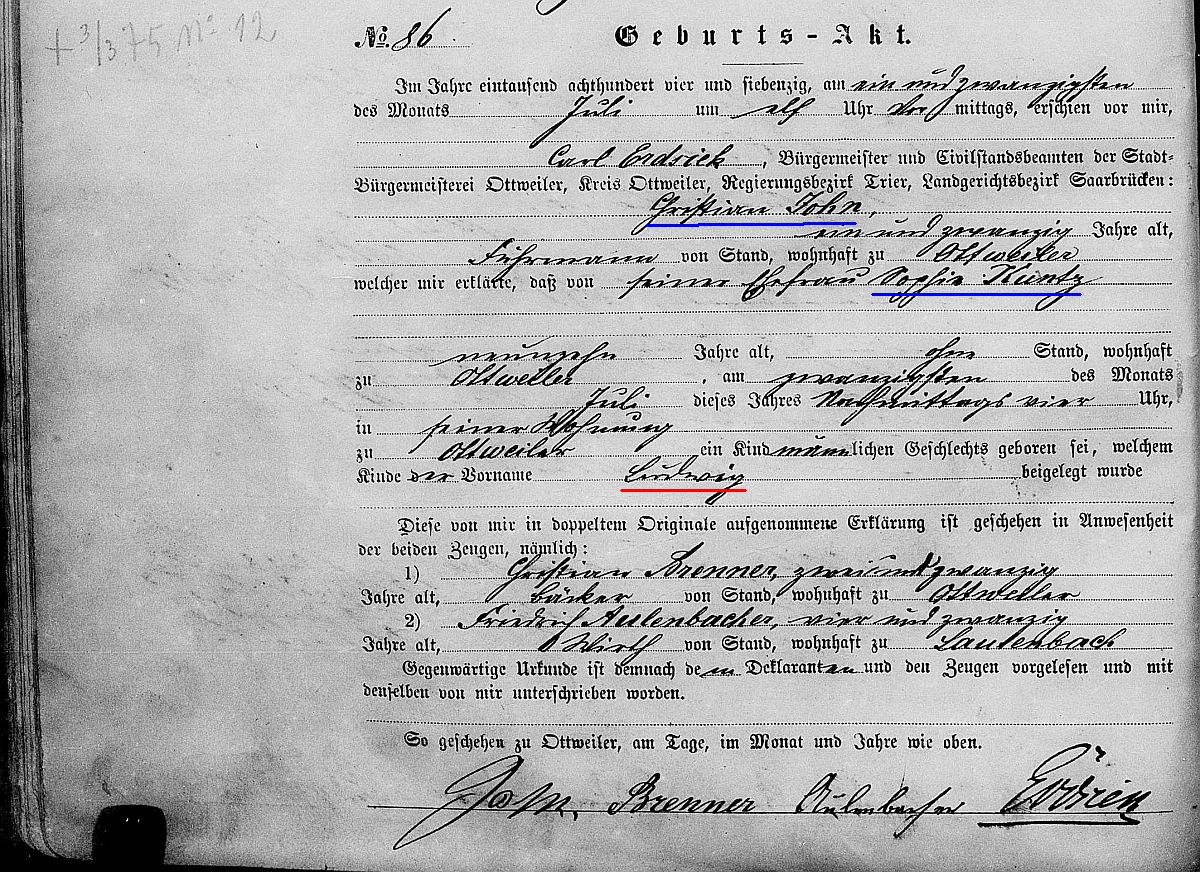 + 3/3 75 No 12
No. 86. Geburts-Akt.
Im Jahre eintausend achthundert vier und siebenzig, am ein und zwanzigsten
des Monats Juli um elf Uhr Vor mittags, erschien vor mir,
Carl , Bürgermeister und Civilstandsbeamten der Stadt-
Bürgermeisterei Ottweiler, Kreis Ottweiler, Regierungsbezirk Trier, Landgerichtsbezirk Saarbrücken:
Christian John,
ein und zwanzig Jahre alt,
Fuhrmann von Stand, wohnhaft zu Ottweiler
welcher mir erklärte, daß von seiner Ehefrau Sophie Kuntz
neunzehn Jahre alt, ohne Stand, wohnhaft
zu Ottweiler, am zwanzigsten des Monats
Juli dieses Jahres Nachmittags vier Uhr,
in seiner Wohnung
zu Ottweiler ein Kind männlichen Geschlechts geboren sei, welchem
Kinde der Vorname Ludwig beigelegt wurde
Diese von mir in doppeltem Originale aufgenommene Erklärung ist geschehen in Anwesenheit
der beiden Zeugen, nämlich:
1) Christian Brenner, zwei und zwanzig
Jahre alt, Bäcker von Stand, wohnhaft zu Ottweiler
2) Friedrich Aulenbacher, vier und zwanzig
Jahre alt, Wirth von Stand, wohnhaft zu Lautenbach
Gegenwärtige Urkunde ist demnach dem Deklaranten und den Zeugen vorgelesen und mit
denselben von mir unterschrieben worden.
So geschehen zu Ottweiler, am Tage, im Monat und Jahre wie oben.
John. Brenner Aulenbacher